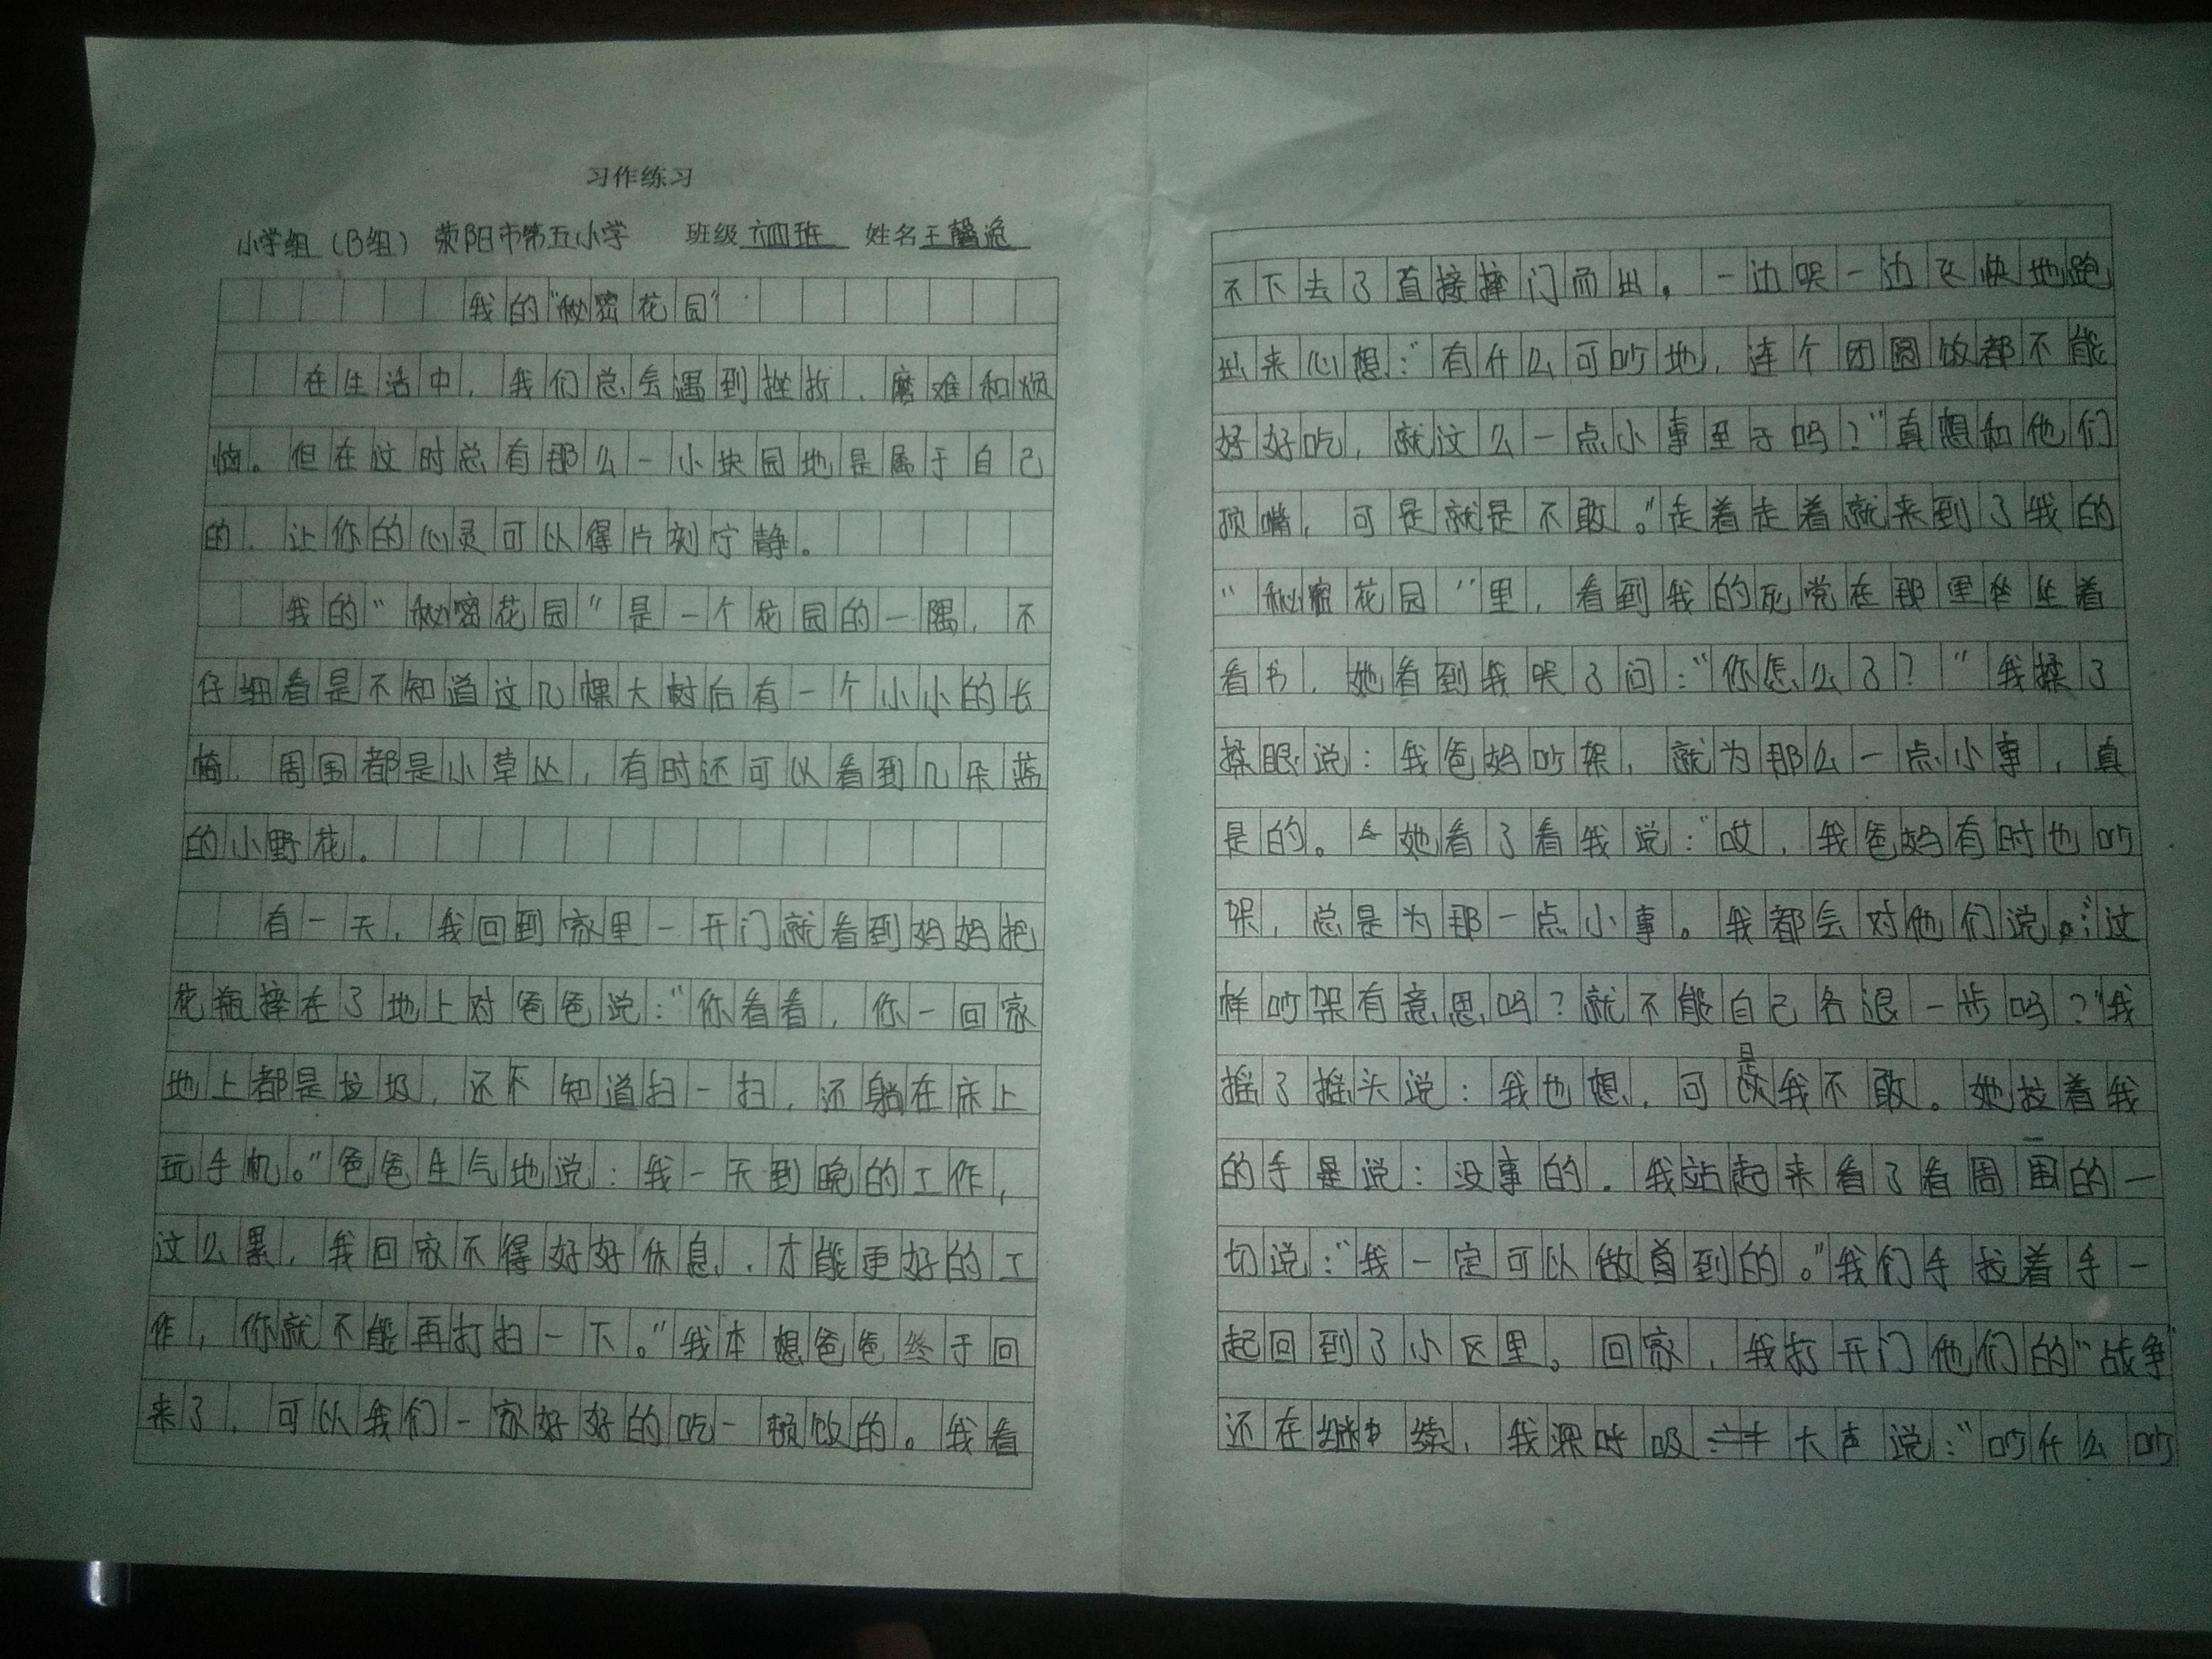 习作练习
小学组（B组） 荥阳市第五小学 班级 六四班 姓名 王馨
我的“秘密花园”
在生活中，我们总会遇到挫折、磨难和烦
恼。但在这时总有那么一小块园地是属于自己
的，让你的心灵可以得片刻宁静。
我的“秘密花园”是一个花园的一隅，不
仔细看是不知道这几棵大树后有一个小小的长
椅，周围都是小草丛，有时还可以看到几朵蓝
的小野花。
有一天，我回到家里一开门就看到妈妈把
花瓶摔在了地上对爸爸说：“你看看，你一回家
地上都是垃圾，还不知道扫一扫，还躺在床上
玩手机。”爸爸生气地说：我一天到晚的工作，
这么累，我回家不得好好休息，才能更好的工
作，你就不能再打扫一下。”我本想爸爸终于回
来了，可以我们一家好好的吃一顿饭的。我看
不下去了直接摔门而出。一边哭一边飞快地跑
出来心想：“有什么可吵地，连个团圆饭都不能
好好吃，就这么一点小事至于吗？”真想和他们
顶嘴，可是就是不敢。”走着走着就来到了我的
“秘密花园”里，看到我的死党在那里坐坐着
看书，她看到我哭了问：“你怎么了？”我揉了
揉眼说：我爸妈吵架，就为那么一点小事，真
是的。她看了看我说：“哎，我爸妈有时也吵
架，总是为那一点小事。我都会对他们说：“这
样吵架有意思吗？就不能自己各退一步吗？”我
摇了摇头说：我也想，可是我不敢。她拉着我
的手说：没事的。我站起来看了看周围的一
切说：“我一定可以做到的。”我们手拉着手一
起回到了小区里。回家，我打开门他们的“战争”
还在继续，我深呼吸大声说：“吵什么吵